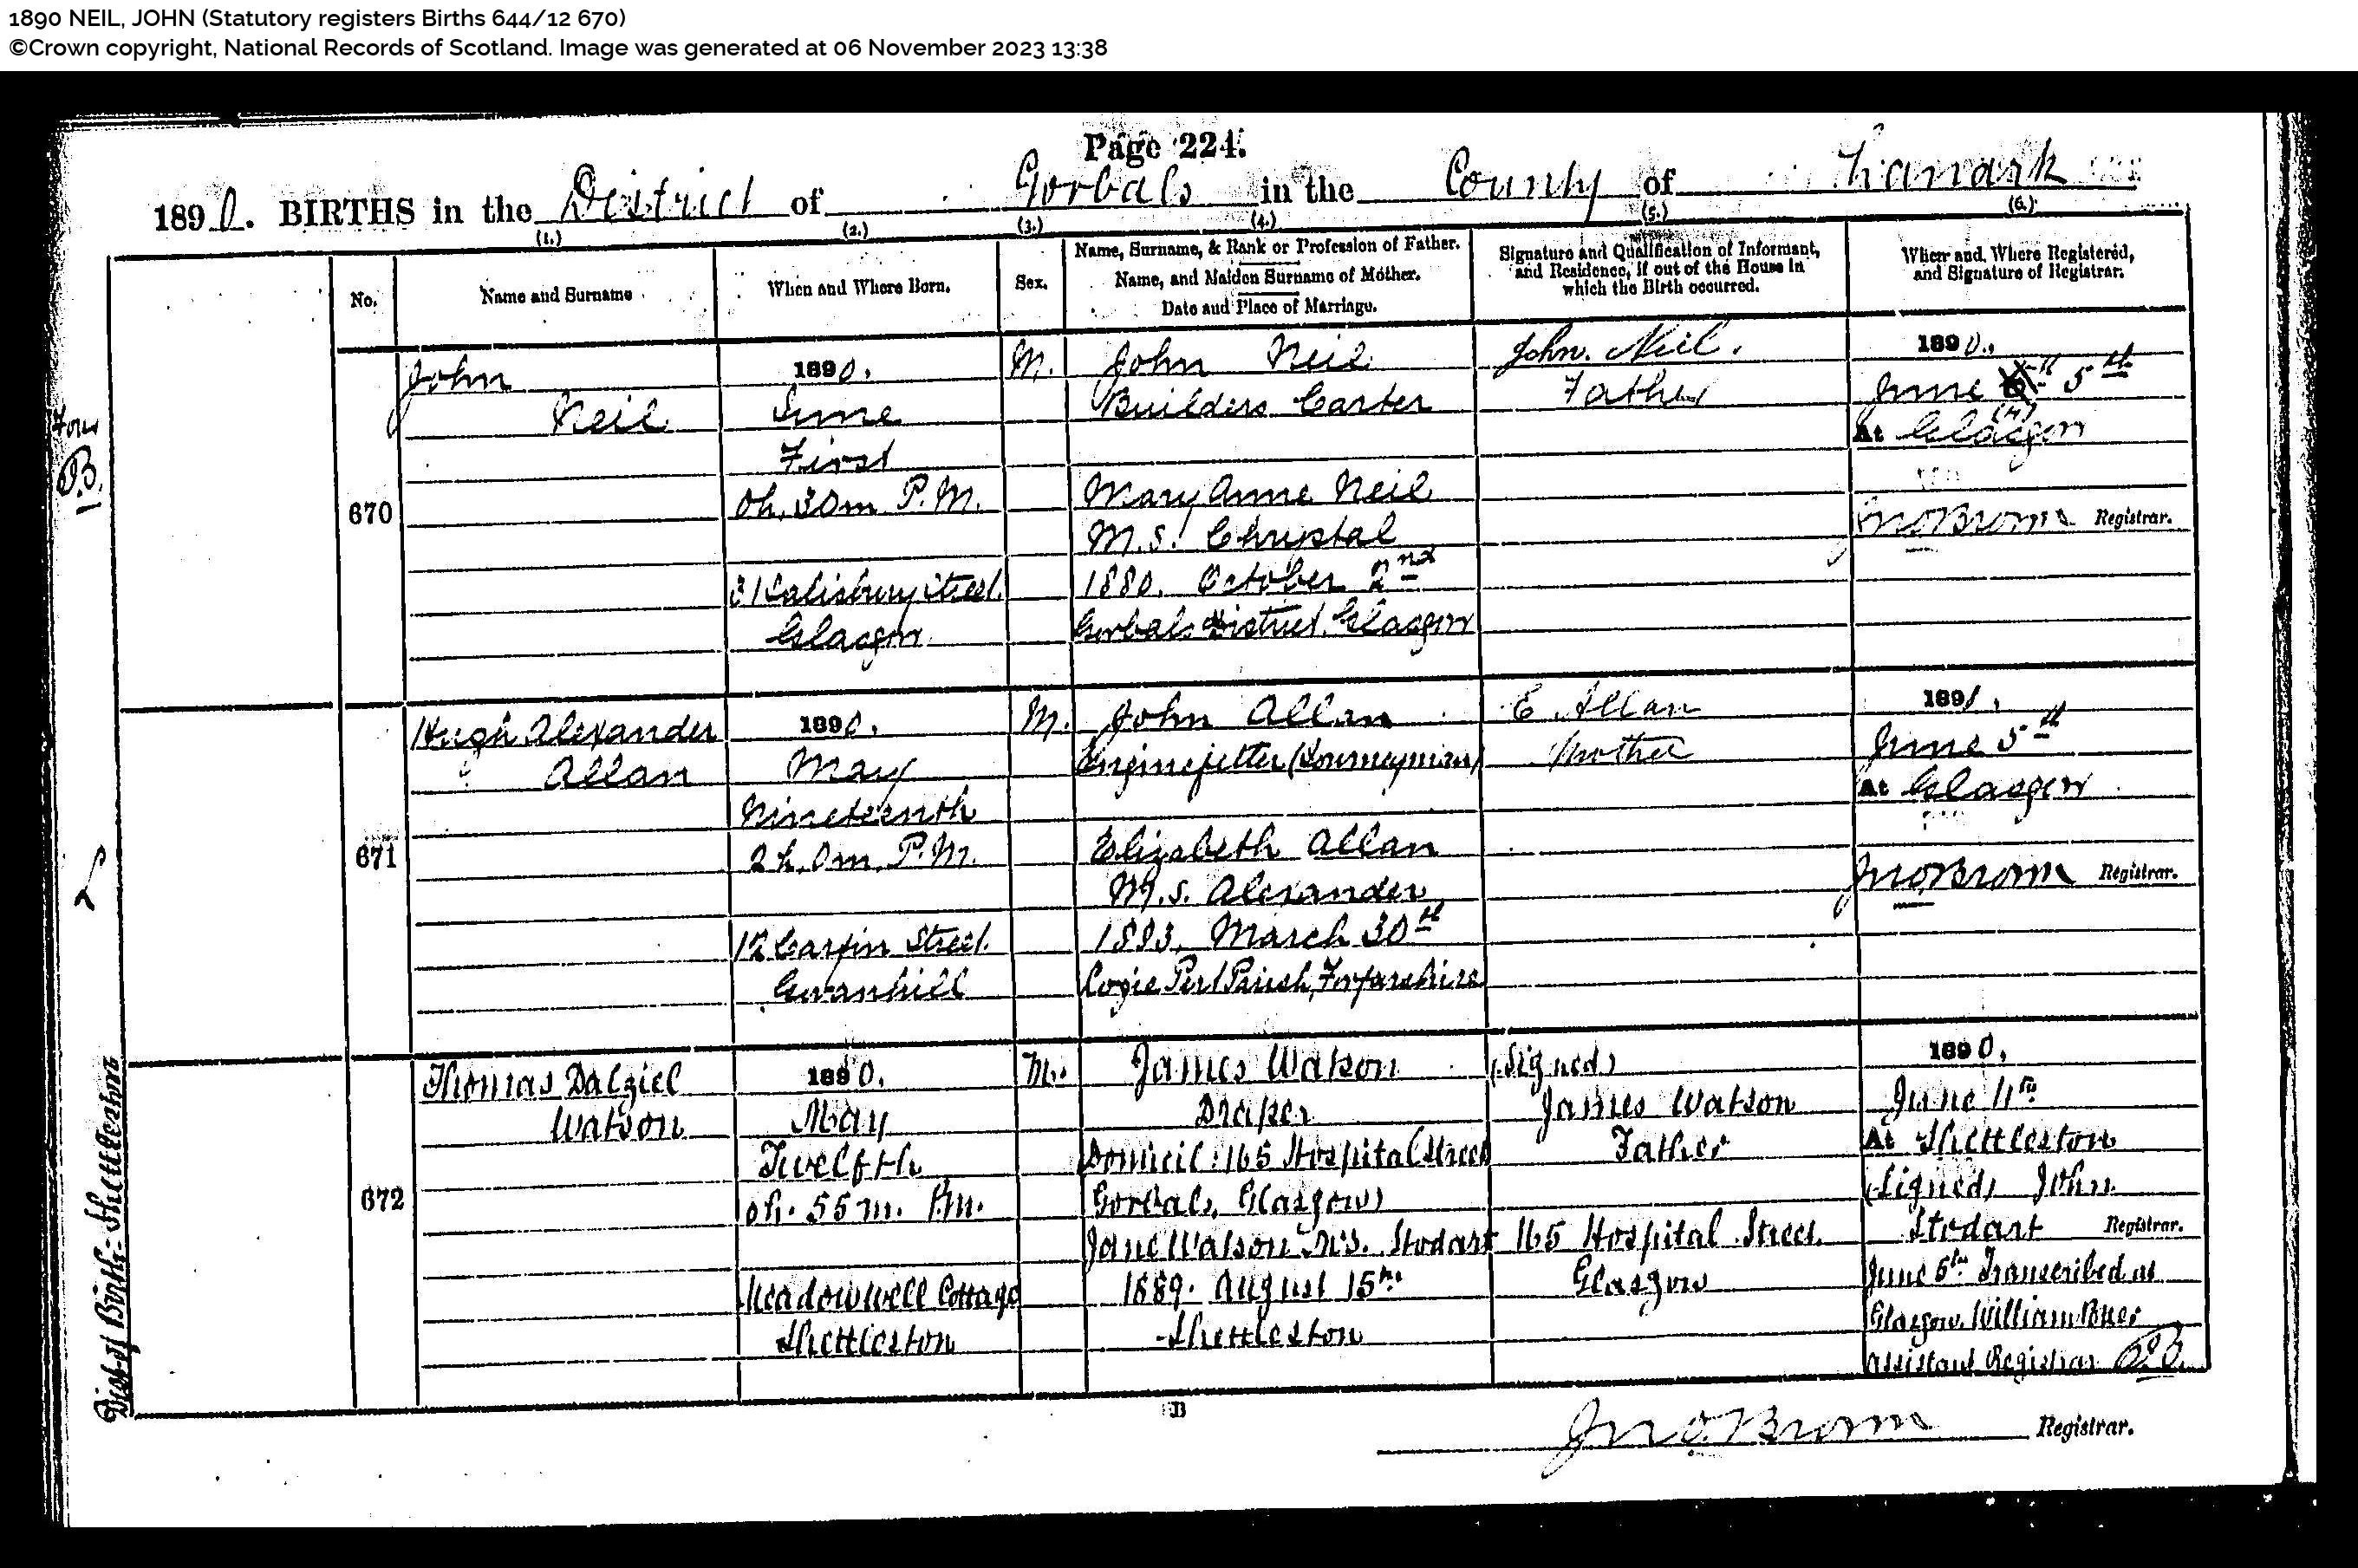 1890 NEIL, JOHN (Statutory registers Births 644/12 670)
©Crown copyright, National Records of Scotland. Image was generated at 06 November 2023 13:38
Page 224.
1890. BIRTHS in the District of Gorbals in the County of Lanark
(1.) (2.) (3.) (4.) (5.) (6.)
No.
Name and Surname
When and Where Born.
Sex.
Name, Surname, & Rank or Profession of Father.
Name, and Maiden Surname of Mother.
Date and Place of Marriage.
Signature and Qualification of Informant,
and Residence, if out of the House in
which the Birth occurred.
When and Where Registered,
and Signature of Registrar.
670
John
Neil
1890.
June
First
0h. 30m P.M.
31 Salisbury Street.
Glasgow
M.
John Neil
Builders Carter
Mary Anne Neil
M.S. Chrystal
1880. October 2nd
Gorbals District. Glasgow
John. Neil.
Father
1890.
June 5th
At Glasgow
Jno Brown Registrar.
671
Hugh Alexander
Allan
1890.
May
Nineteenth
2h. 0m. P.M.
12 Carfin Street.
Govanhill
M.
John Allan
Enginefitter (Journeyman)
Elizabeth Allan
M.S. Alexander
March 30th
Logie Pert Parish, Forfarshire
E. Allan
Mother
189
June 5th
At Glasgow
Jno Brown Registrar.
672
Thomas Dalziel
Watson
1890.
May
Twelfth
0h. 55m. P.M.
Meadowwell Cottage
Shettleston
M.
James Watson
Draper
Domicil: 165 Hospital Street
Gorbals, Glasgow)
Jane Watson M.S. Stodart
1889. August 15th
Shettleston
(Signed)
James Watson
Father
165 Hospital Street.
Glasgow
1890.
June 11th
At Shettleston
(Signed) John
Stodart Registrar.
June Transcribed at
Glasgow. William
Assistant Registrar
Dist of Birth:- Shettleston
B
Jno. Brown Registrar.